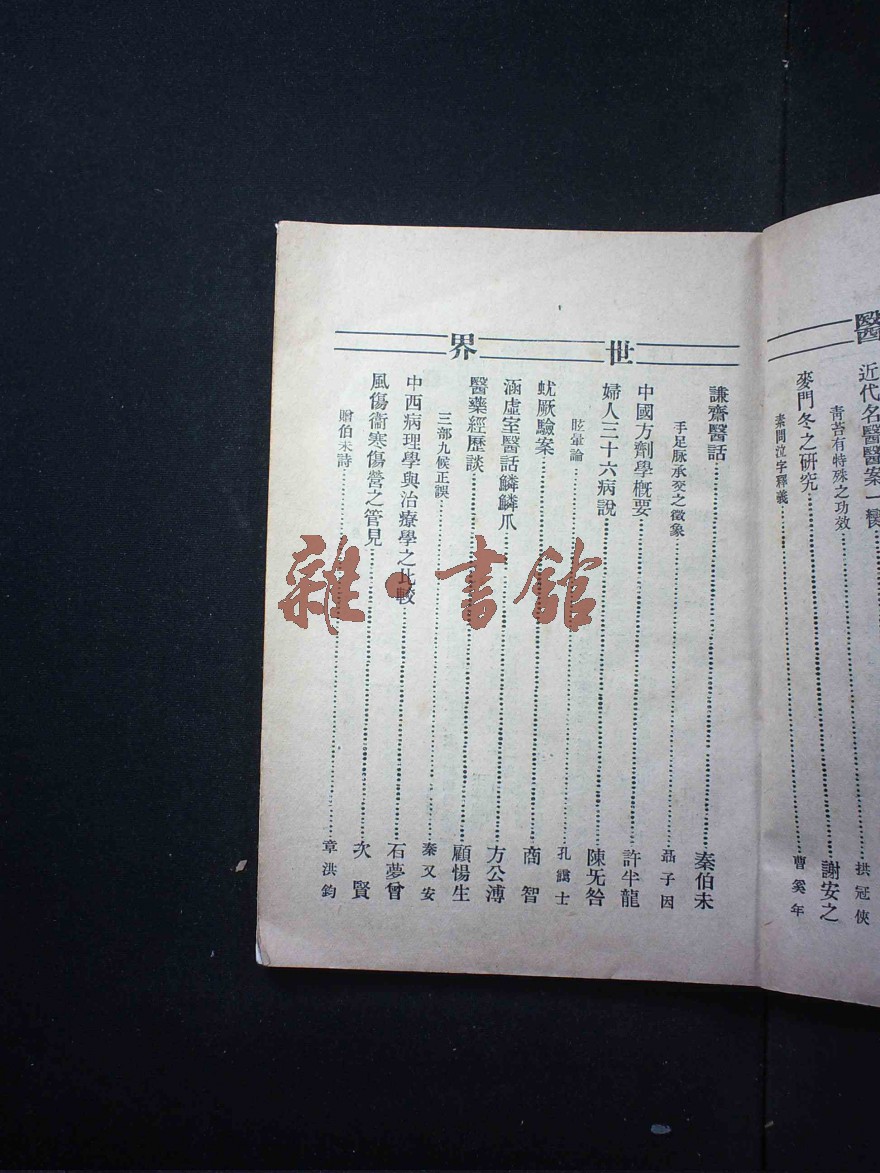 醫
近代名醫醫案一
青苔有特殊之功效……拱冠俠
麥門冬之研究……謝安之
素問泣字釋義……曹奚年
世界
謙齋醫話……秦伯未
手足脉承交之徵象……聶子因
中國方劑學槪要……許半龍
婦人三十六病說……陳旡咎
眩暈論……孔藹士
蚘厥驗案……商智
涵虛室醫話鱗鱗爪……方公溥
醫藥經歷談……顧惕生
三部九候正誤……秦又安
中西病理學與治療學之比較……石夢曾
風傷衞寒傷營之管見……次賢
贈伯未詩……章洪鈞
雜·書館